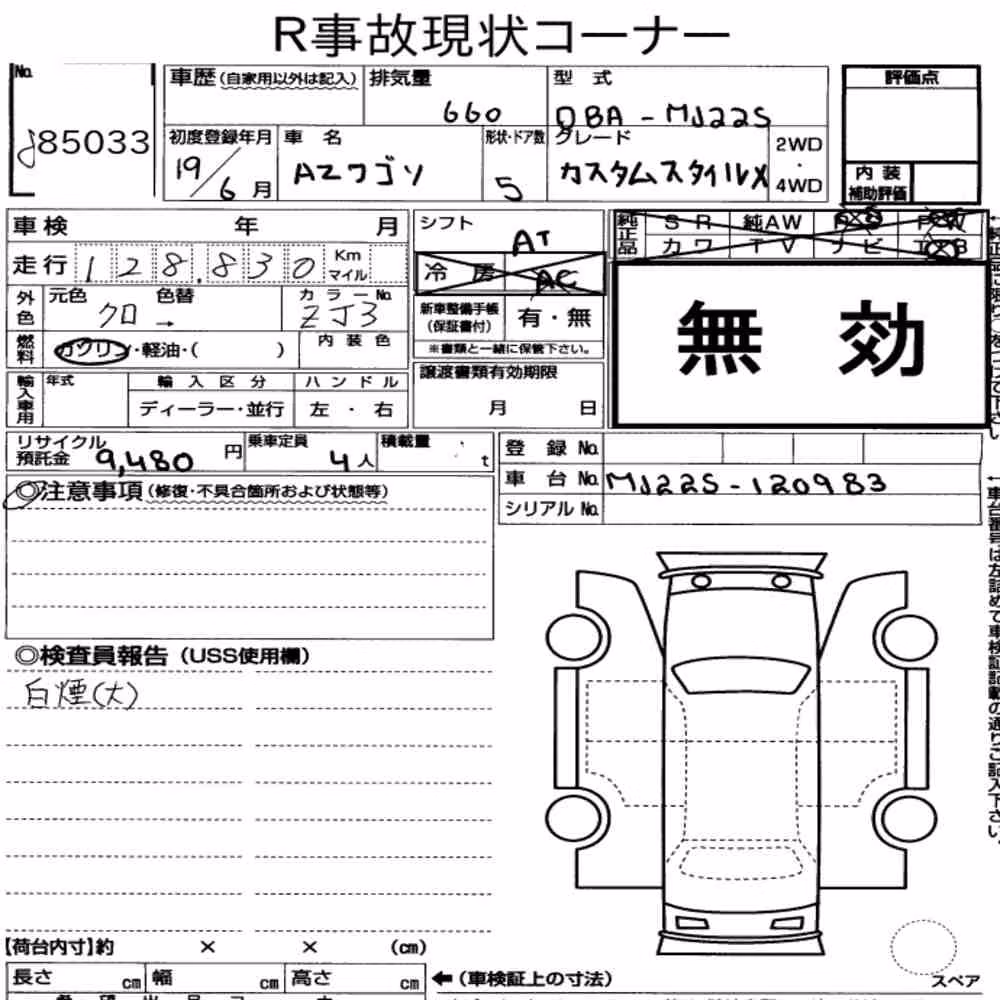 R事故現状コーナー
No.
85033
車歴 (自家用以外は記入)
排気量
660
型式
DBA-MJ22S
評価点
初度登録年月
19/6月
車名
AZワゴン
形状・ドア数
5
グレード
カスタムスタイルX
2WD
・
4WD
内装
補助評価
車検 年 月
走行 128,830 Km
マイル
シフト
AT
冷房 AC
純正品
SR 純AW PS PW
カワ TV ナビ
外色
元色 クロ →
色替
カラーNo.
ZJ3
新車整備手帳
(保証書付)
有・無
※書類と一緒に保管下さい。
無効
燃料
ガソリン・軽油・( )
内装色
輸入車用
年式
輸入区分
ディーラー・並行
ハンドル
左・右
譲渡書類有効期限
月 日
リサイクル
預託金 9,480円
乗車定員
4人
積載量
t
登録No.
車台No. MJ22S-120983
シリアルNo.
◎注意事項 (修復・不具合箇所および状態等)
◎検査員報告 (USS使用欄)
白煙(大)
【荷台内寸】約 × × (cm)
長さ cm 幅 cm 高さ cm
← (車検証上の寸法)
スペア
←車台番号は左詰めで車検証記載の通りご記入下さい。